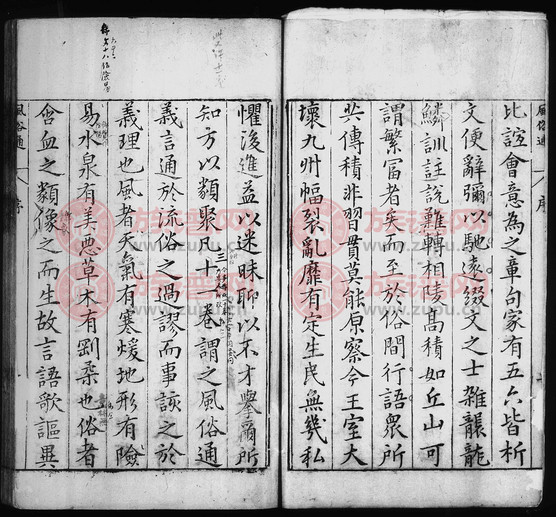 比誼會意為之章句家有五六皆析
文便辭彌以馳遠綴文之士雜襲龍
鱗訓註說難轉相陵高積如丘山可
謂繁富者矣而至於俗間行語眾所
共傳積非習貫莫能原察今王室大
壞九州幅裂亂靡有定生民無幾私
風俗通
序
懼後進益以迷昧聊以不才舉爾所
知方以類聚凡十一卷謂之風俗通
義言通於流俗之過謬而事該之於
義理也風者天氣有寒煖地形有險
易水泉有美惡草木有剛柔也俗者
含血之類像之而生故言語歌謳異
風俗通
序
族譜网
www.zupu.cn